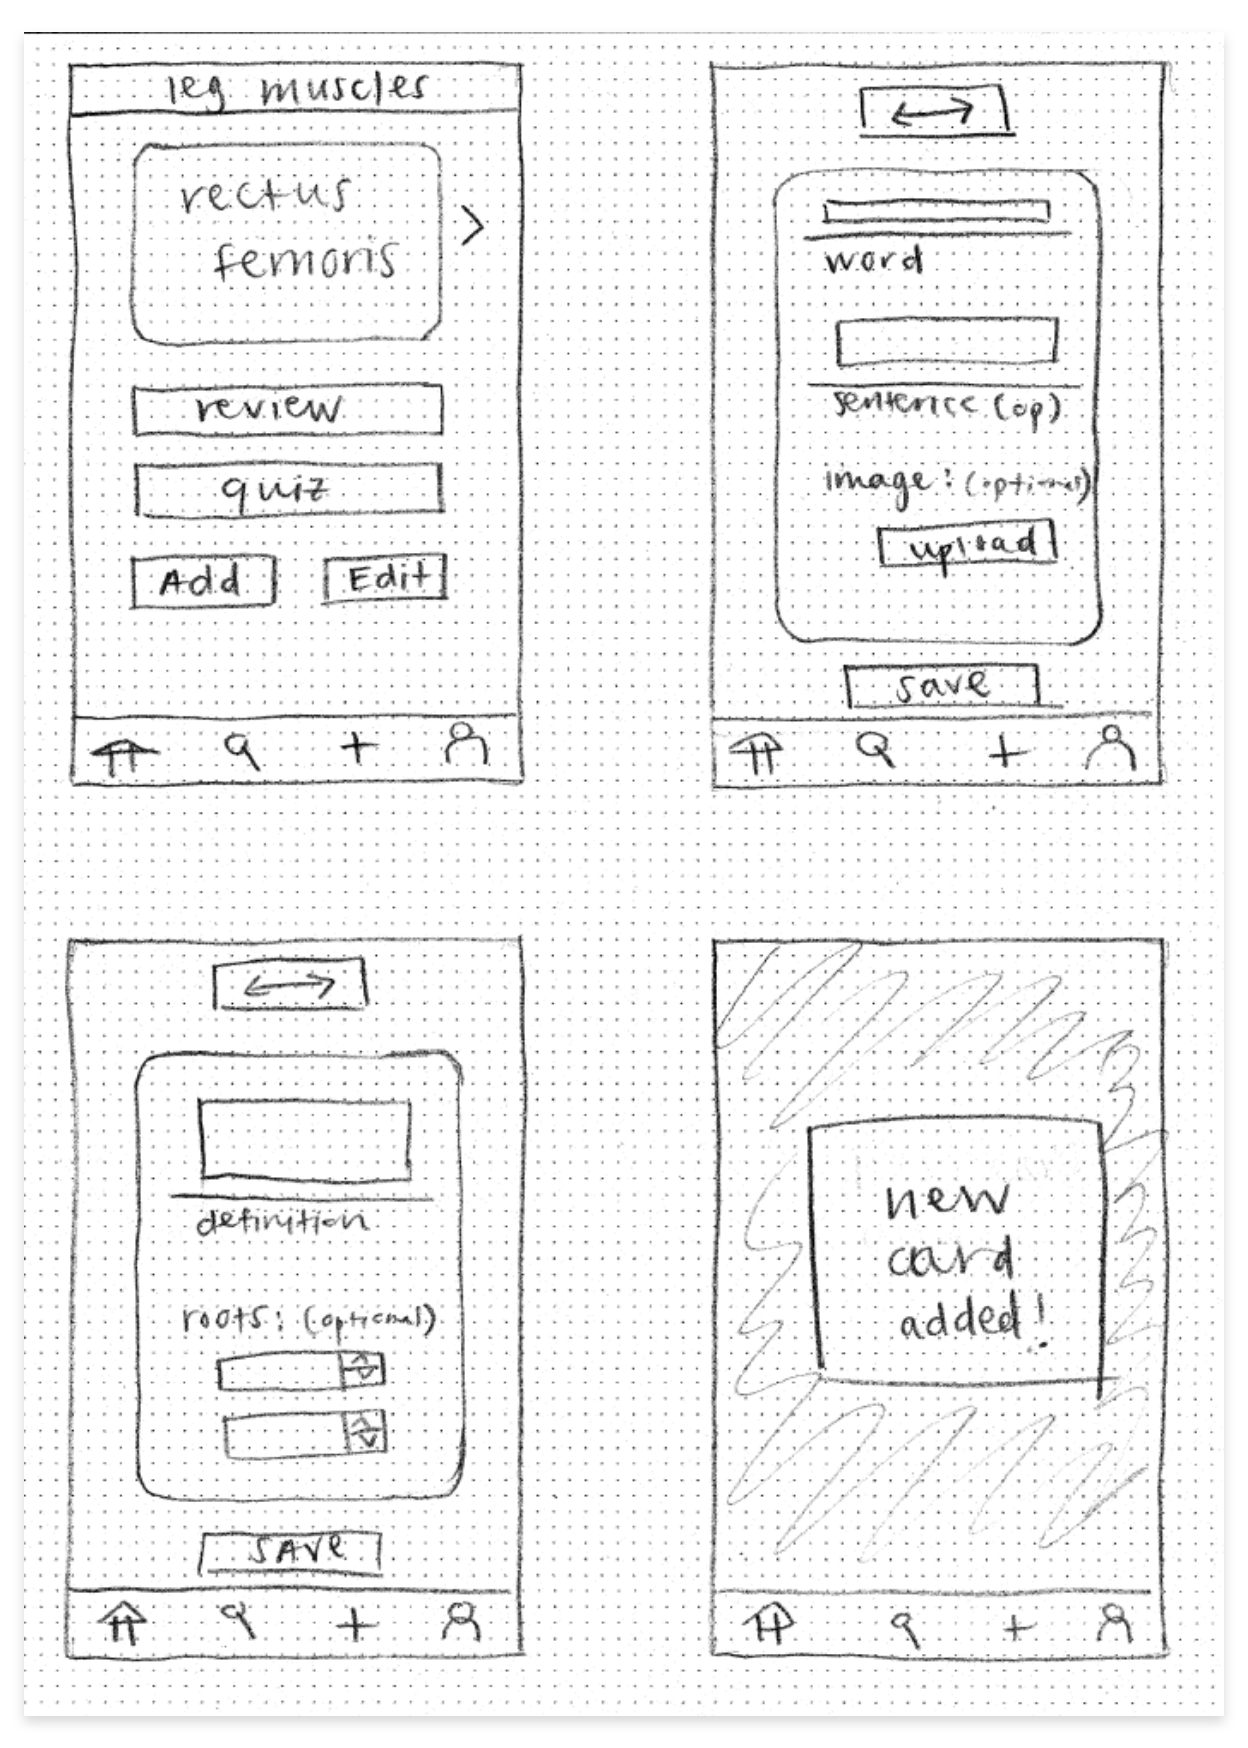 leg muscles
rectus
femoris
review
quiz
Add Edit
word
sentence (op)
image: (optional)
upload
save
definition
roots: (optional)
SAVe
new
card
added!